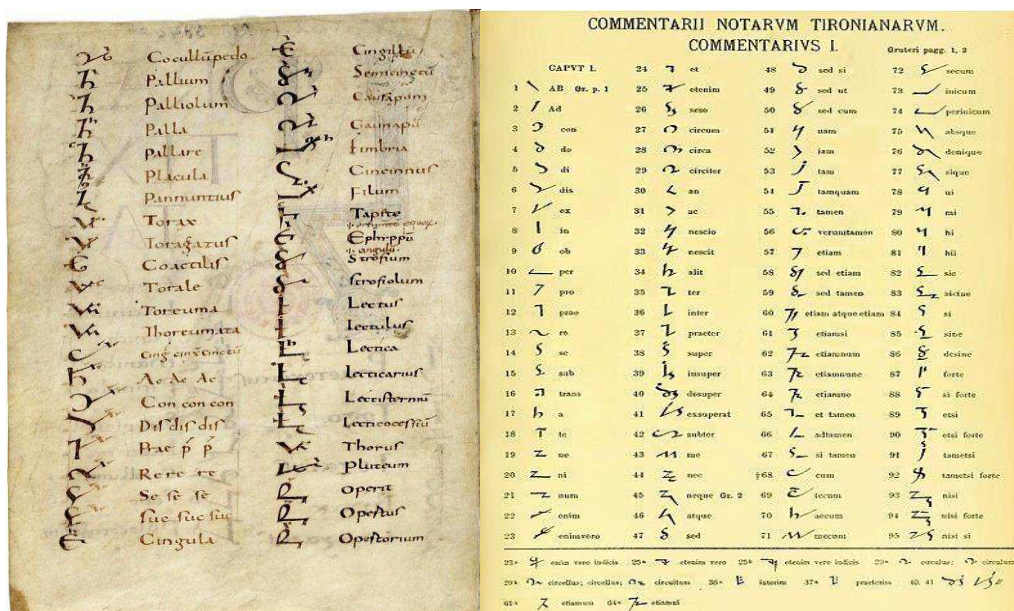 Cocullupedo
Pallium
Palliolum
Palla
Pallare
Placula
Pannuntius
Torax
Toragatus
Coactilis
Torale
Toreuma
Thoreumata
Ac Ac Ac
Con con con
Dis dis dis
Prae p̄ p̄
Re re re
Se se se
Suc suc suc
Cingula
Cingillū
Semicinctū
Gaunapū
Fimbria
Cincinnus
Filum
Tapete
Ephippiū
Strofium
Strofiolum
Lectus
Lectulus
Lectica
Lecticarius
Lectisterniū
Thorus
Pluteum
Operit
Opertus
Opertorium
COMMENTARII NOTARVM TIRONIANARVM.
COMMENTARIVS I.
Gruteri pagg. 1, 2
CAPVT I.
1 AB Gr. p. 1
2 Ad
3 con
4 de
5 di
6 dis
7 ex
8 in
9 ob
10 per
11 pro
12 prae
13 re
14 se
15 sub
16 trans
17 a
18 te
19 ne
20 ni
21 num
22 enim
23 enimvero
24 et
25 etenim
26 seno
27 circum
28 circa
29 circiter
30 an
31 ac
32 nescio
33 nescit
34 alit
35 ter
36 inter
37 praeter
38 super
39 insuper
40 desuper
41 exsuperat
42 subter
43 me
44 nec
45 neque Gr. 2
46 atque
47 sed
48 sed si
49 sed ut
50 sed cum
51 nam
52 iam
53 tam
54 tamquam
55 tamen
56 verumtamen
57 etiam
58 sed etiam
59 sed tamen
60 etiam atque etiam
61 etiamsi
62 etiamnum
63 etiamnunc
64 etiamne
65 et tamen
66 adtamen
67 si tamen
68 cum
69 tecum
70 aecum
71 mecum
72 secum
73 inicum
74 perinicum
75 absque
76 denique
77 sique
78 ui
79 mi
80 hi
81 hii
82 sic
83 sicine
84 si
85 sine
86 desine
87 forte
88 si forte
89 etsi
90 etsi forte
91 tametsi
92 tametsi forte
93 nisi
94 nisi forte
95 nisi si
23a enim vero iudicis 25a etenim vero 25b etenim vero iudicis 29a circulus; circulum
29b circellus; circellus; circuitum 36a interim 37a praeterim 40. 41
61a etiamum 64a etiamti